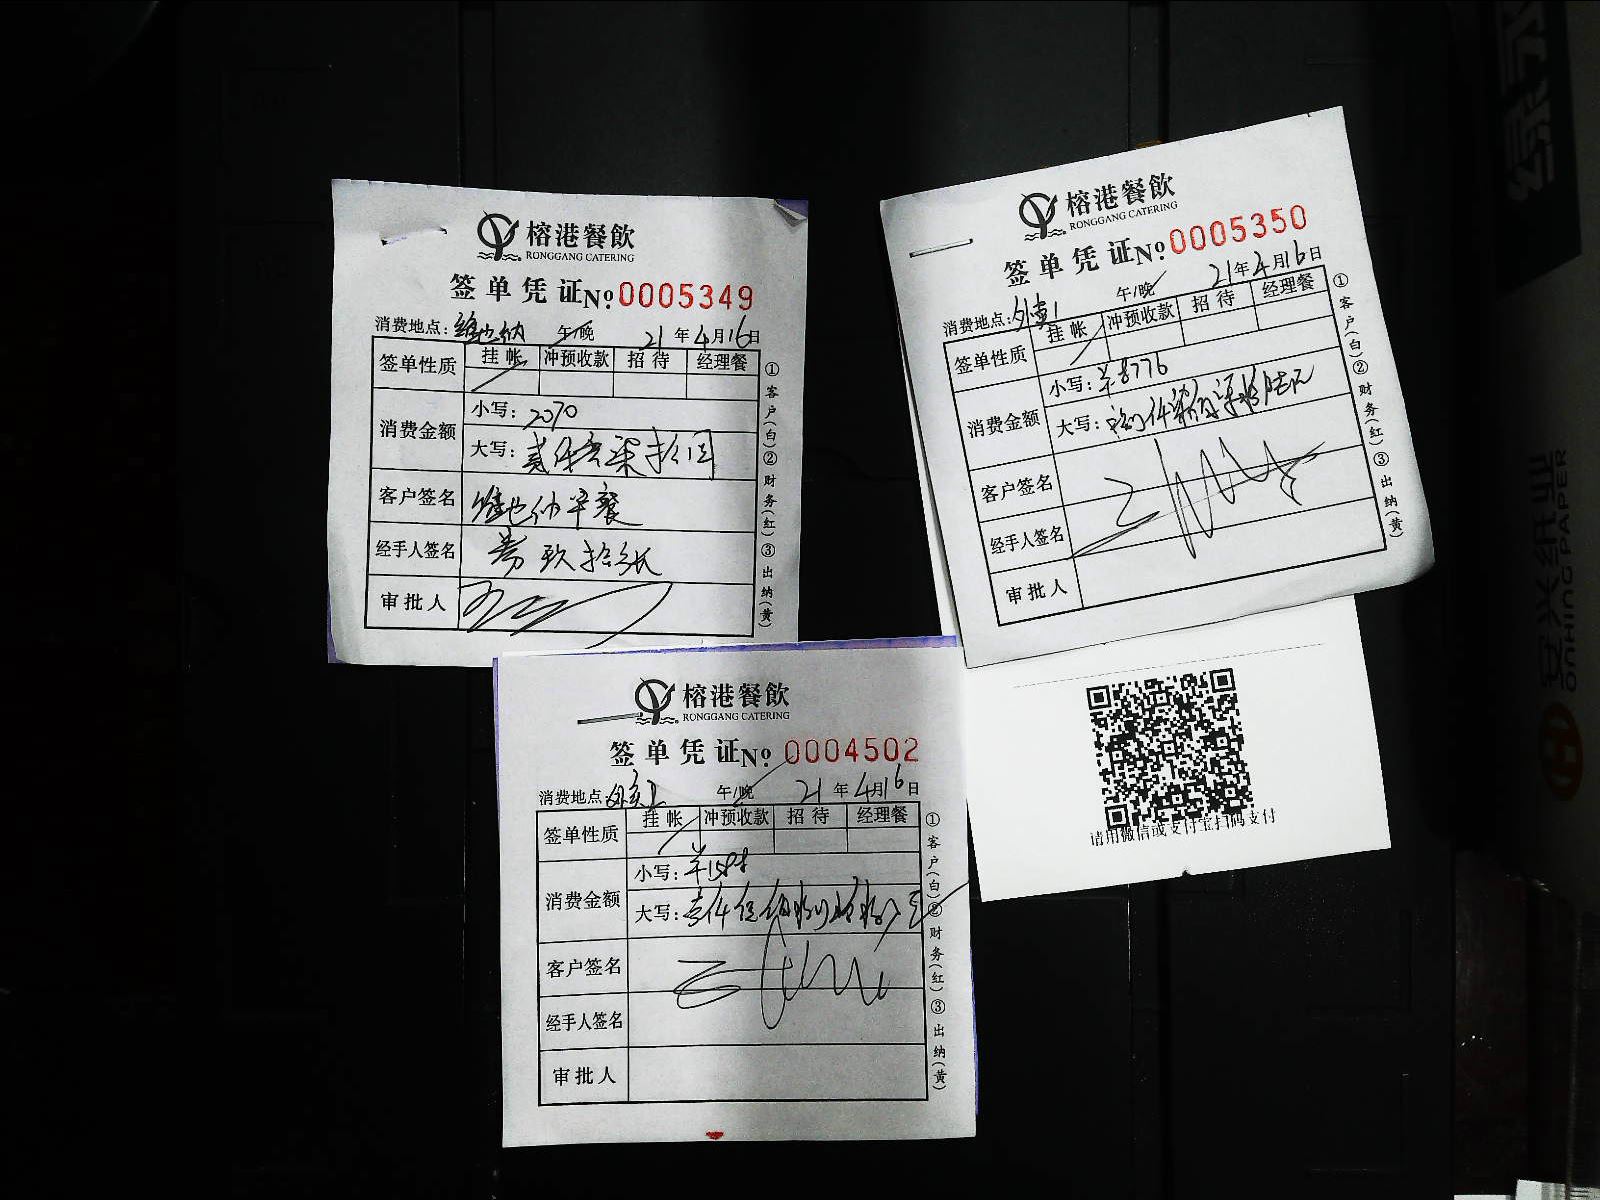 榕港餐飲
RONGGANG CATERING
签单凭证№0005349
消费地点：维也纳 午/晚 21年4月16日
签单性质 挂帐 冲预收款 招待 经理餐
消费金额 小写：2070
大写：贰仟零柒拾圆
客户签名 维也纳早餐
经手人签名 券玖拾张
审批人
①客户(白)②财务(红)③出纳(黄)
榕港餐飲
RONGGANG CATERING
签单凭证№0005350
消费地点： 午/晚 21年4月16日
签单性质 挂帐 冲预收款 招待 经理餐
消费金额 小写：¥8776
大写：
客户签名
经手人签名
审批人
①客户(白)②财务(红)③出纳(黄)
榕港餐飲
RONGGANG CATERING
签单凭证№0004502
消费地点： 午/晚 21年4月16日
签单性质 挂帐 冲预收款 招待 经理餐
消费金额 小写：
大写：
客户签名
经手人签名
审批人
①客户(白)②财务(红)③出纳(黄)
请用微信或支付宝扫码支付
安兴纸业
ONHING PAPER